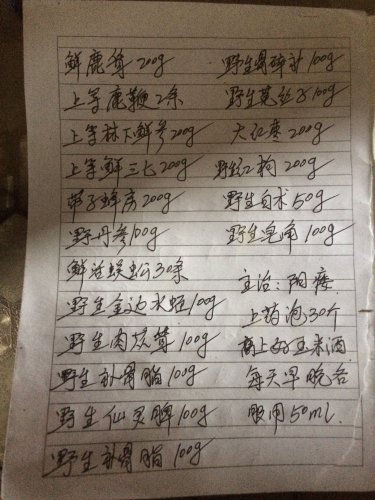 鲜鹿茸200g
上等鹿鞭2条
上等林下鲜参200g
上等鲜三七200g
带子蜂房200g
野丹参100g
鲜活蜈蚣30条
野生金边水蛭100g
野生肉苁蓉100g
野生补骨脂100g
野生仙灵脾100g
野生补骨脂100g
野生骨碎补100g
野生菟丝子100g
大红枣200g
野红枸200g
野生白术50g
野生皂角100g
主治:阳痿
上药泡30斤
上好玉米酒
每天早晚各
服用50mL.